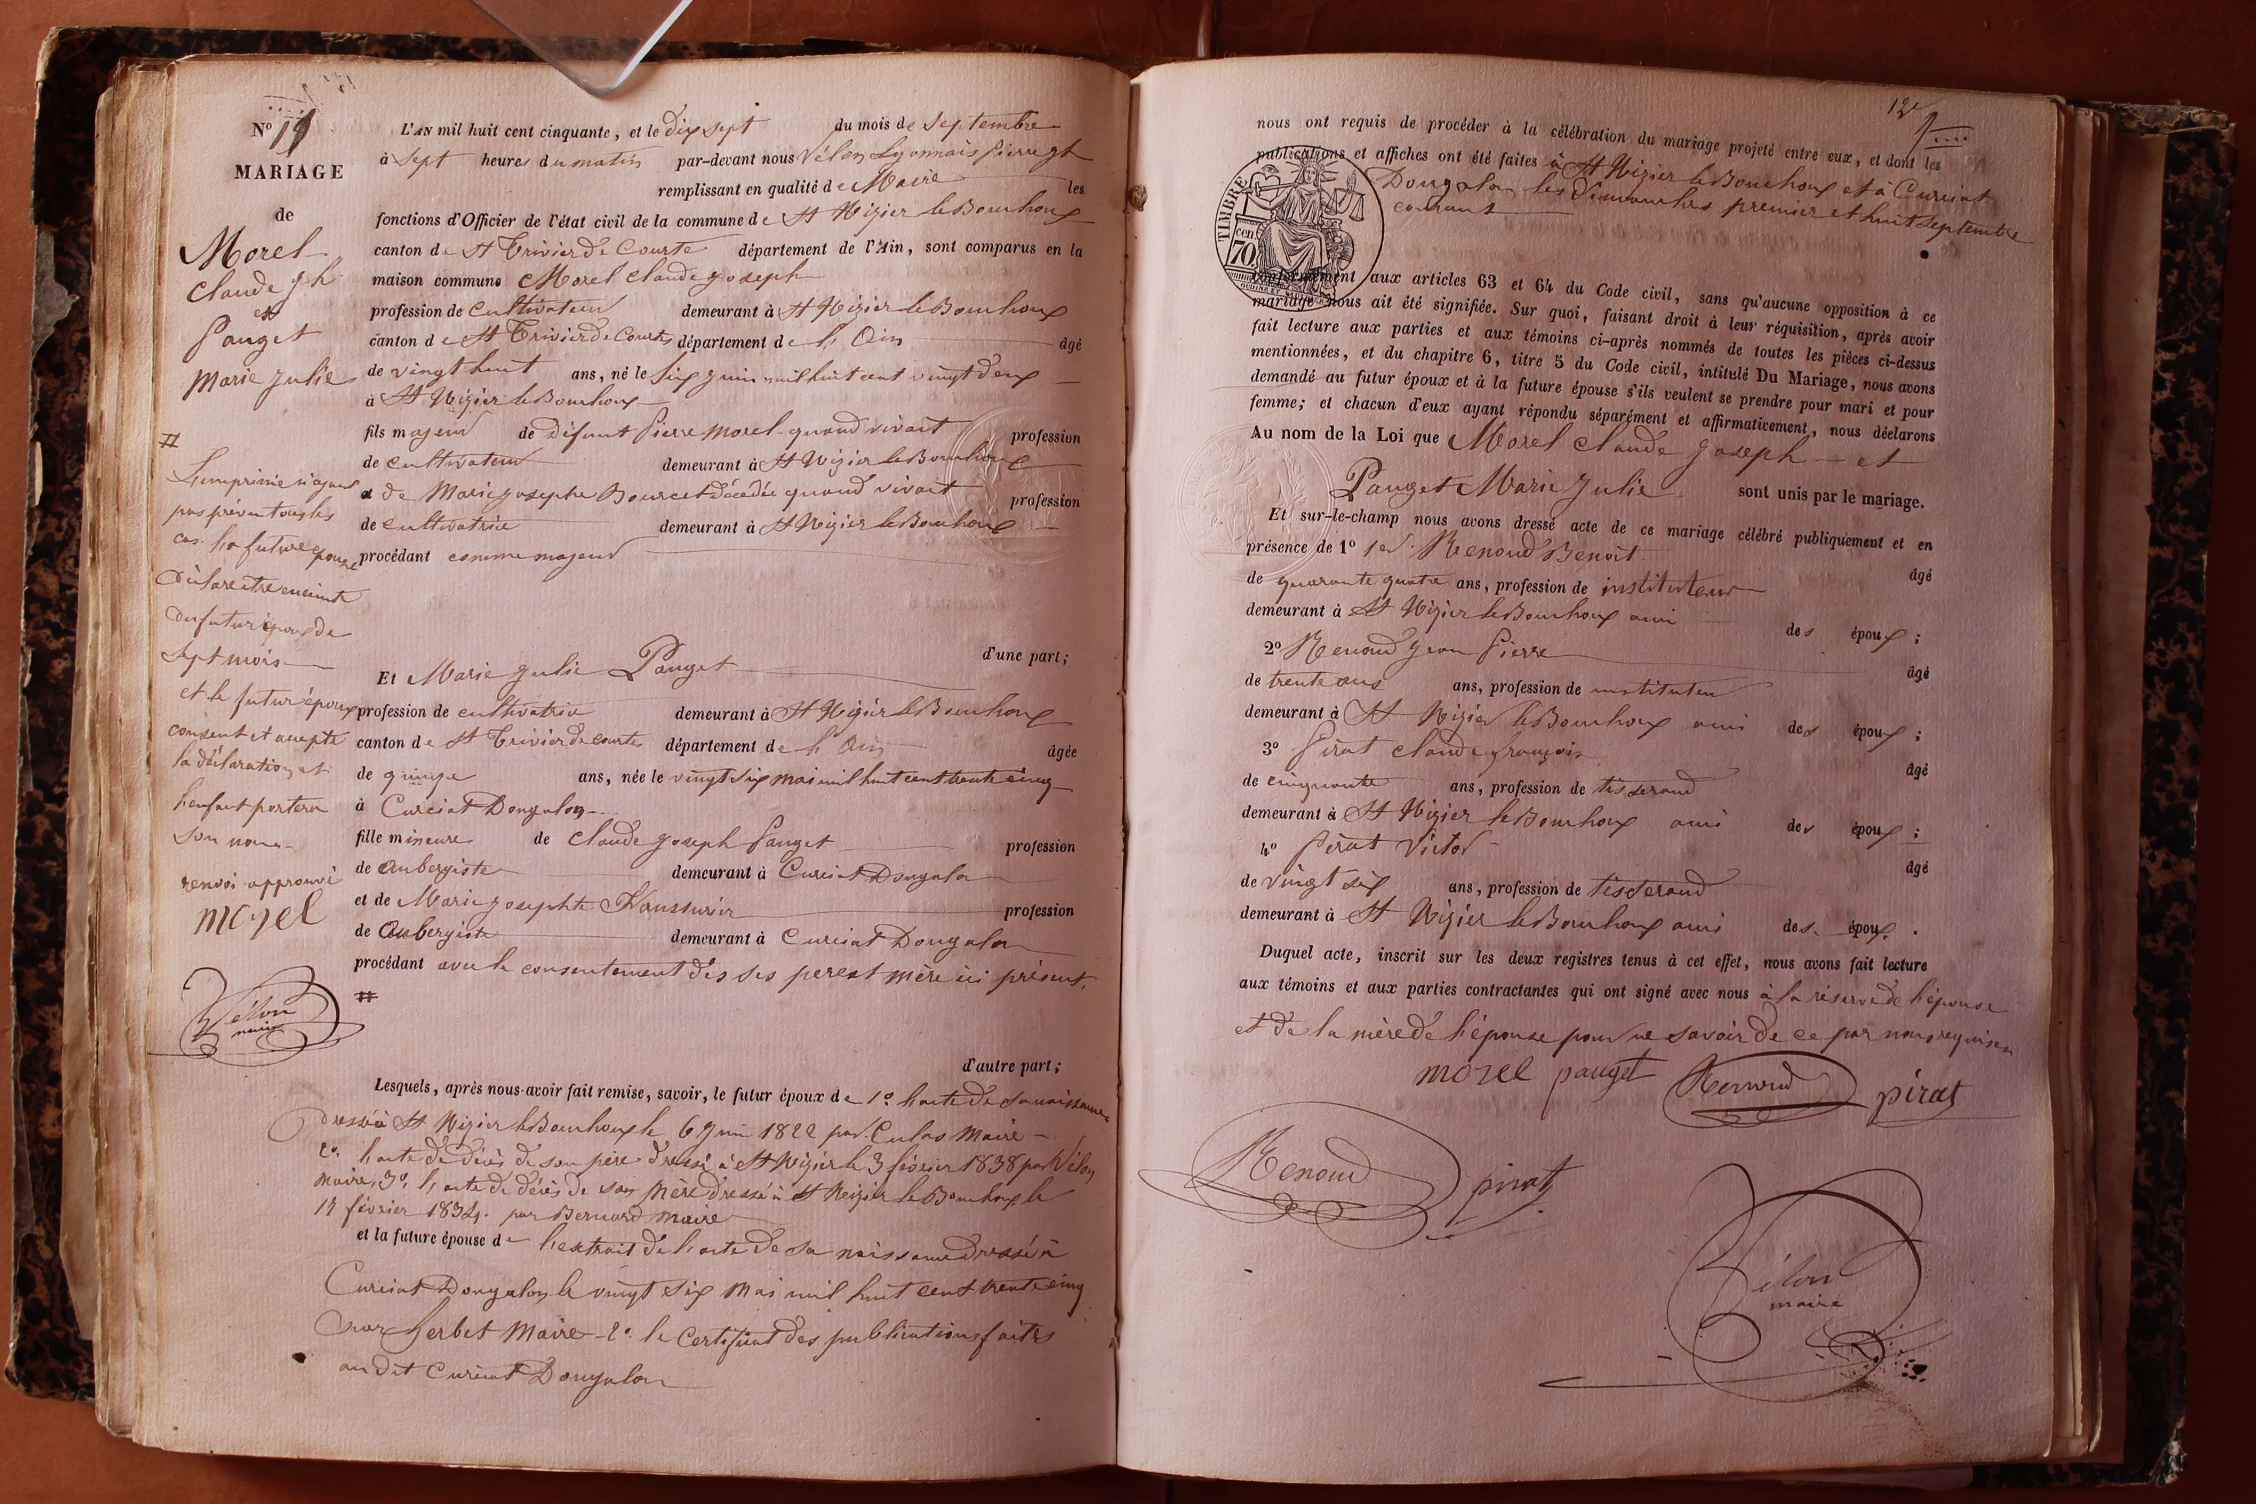 No 19
MARIAGE
de
Morel
Claude jh
et
Pauget
Marie Julie
L'AN mil huit cent cinquante, et le dix sept du mois de Septembre
à Sept heures du matin par-devant nous Vélon Lyonnais Pierre jh
remplissant en qualité de Maire les
fonctions d'Officier de l'état civil de la commune de St Nizier le Bouchoux
canton de St Trivier de Courtes département de l'Ain, sont comparus en la
maison commune Morel Claude Joseph
profession de Cultivateur demeurant à St Nizier le Bouchoux
canton de St Trivier de Courtes département de l'Ain âgé
de vingt huit ans, né le six juin mil huit cent vingt deux
à St Nizier le Bouchoux
fils majeur de défunt Pierre Morel quand vivait profession
de cultivateur demeurant à St Nizier le Bouchoux
et de Marie Josephe Bourcet décédée quand vivait profession
de cultivatrice demeurant à St Nizier le Bouchoux
procédant comme majeur
d'une part;
Et Marie Julie Pauget
profession de cultivatrice demeurant à St Nizier le Bouchoux
canton de St Trivier de Courtes département de l'Ain âgée
de quinze ans, née le vingt six mai mil huit cent trente cinq
à Curciat Dongalon
fille mineure de Claude Joseph Pauget profession
de Aubergiste demeurant à Curciat Dongalon
et de Marie Josephte profession
de Aubergiste demeurant à Curciat Dongalon
procédant avec le consentement des ses pere et mère ici présent.
#
d'autre part;
#
L'imprimé n'ayant
pas prévu tous les
cas. La future épouse
déclare etre enceinte
du futur époux de
sept mois
et le futur époux
consent et accepte
la déclaration et
l'enfant portera
son nom
renvoi approuvé
morel
Vélon
maire
Lesquels, après nous avoir fait remise, savoir, le futur époux de 1º l'acte de sa naissance
dressé à St Nizier le Bouchoux le 6 juin 1822 par Culas Maire
2º l'acte de décès de son père dressé à St Nizier le 3 février 1838 par Vélon
maire, 3º, l'acte de décès de sa mère dressé à St Nizier le Bouchoux le
14 février 1834. par Bernard maire
et la future épouse de l'extrait de l'acte de sa naissance dressé à
Curciat Dongalon le vingt six mai mil huit cent trente cinq
par Gerbet Maire 2º le certificat des publications faites
au dit Curciat Dongalon
12
nous ont requis de procéder à la célébration du mariage projeté entre eux, et dont les
publications et affiches ont été faites à St Nizier le Bouchoux et à Curciat
Dongalon les Dimanches premier et huit septembre
courant
TIMBRE
70 cen
conformément aux articles 63 et 64 du Code civil, sans qu'aucune opposition à ce
mariage nous ait été signifiée. Sur quoi, faisant droit à leur réquisition, après avoir
fait lecture aux parties et aux témoins ci-après nommés de toutes les pièces ci-dessus
mentionnées, et du chapitre 6, titre 5 du Code civil, intitulé Du Mariage, nous avons
demandé au futur époux et à la future épouse s'ils veulent se prendre pour mari et pour
femme; et chacun d'eux ayant répondu séparément et affirmativement, nous déclarons
Au nom de la Loi que Morel Claude Joseph et
Pauget Marie Julie sont unis par le mariage.
Et sur-le-champ nous avons dressé acte de ce mariage célébré publiquement et en
présence de 1º Renoud Benoit âgé
de quarante quatre ans, profession de instituteur
demeurant à St Nizier le Bouchoux ami des époux;
2º Renoud Jean Pierre âgé
de trente ans ans, profession de instituteur
demeurant à St Nizier le Bouchoux ami des époux;
3º Pirat Claude François âgé
de cinquante ans, profession de tisserand
demeurant à St Nizier le Bouchoux ami des époux;
4º Pirat Victor âgé
de vingt six ans, profession de tisserand
demeurant à St Nizier le Bouchoux ami des époux.
Duquel acte, inscrit sur les deux registres tenus à cet effet, nous avons fait lecture
aux témoins et aux parties contractantes qui ont signé avec nous à la réserve de l'épouse
et de la mère de l'épouse pour ne savoir de ce par nous requises
morel pauget Renoud pirat
Renoud pirat
Vélon
maire